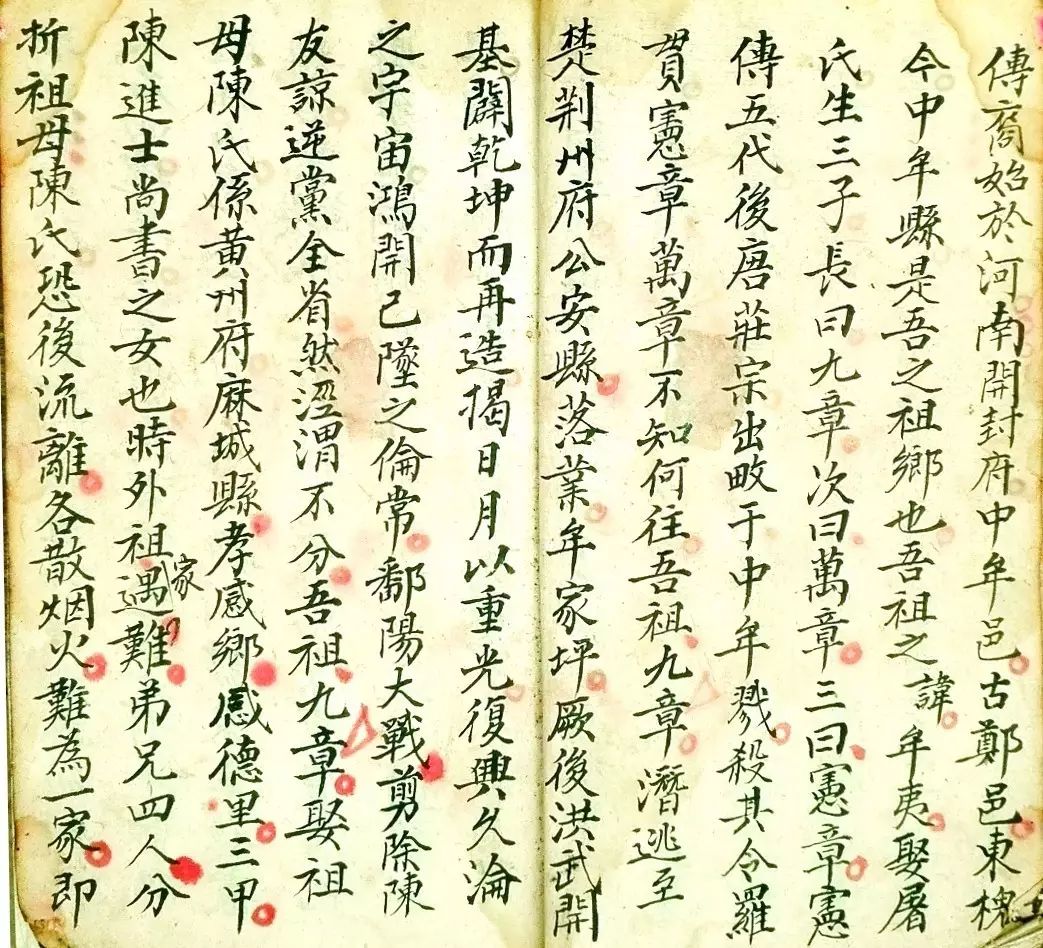 傳裔始於河南開封府中牟邑古鄭邑東槐
今中牟縣是吾之祖鄉也吾祖之諱牟夷娶屠
氏生三子長曰九章次曰萬章三曰憲章憲
傳五代後唐莊宗出畋于中牟戮殺其令羅
貫憲章萬章不知何往吾祖九章潛逃至
楚荆州府公安縣落業牟家坪厥後洪武開
基闢乾坤而再造揭日月以重光復興久淪
之宇宙鴻開已墜之倫常鄱陽大戰剪除陳
友諒逆黨全省然涇渭不分吾祖九章娶祖
母陳氏係黃州府麻城縣孝感鄉感德里三甲
陳進士尚書之女也時外祖家遇難弟兄四人分
折祖母陳氏恐後流離各散烟火難為一家即